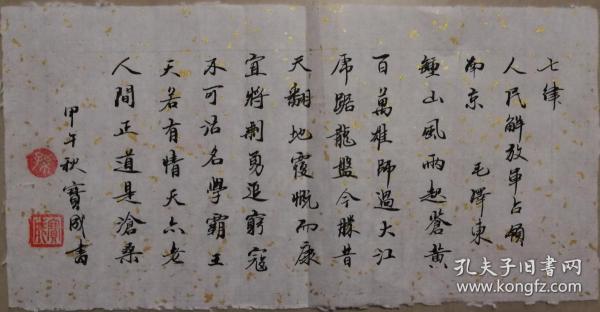 七律
人民解放军占领
南京　毛泽东
鍾山風雨起蒼黄
百萬雄師過大江
虎踞龍盤今勝昔
天翻地覆慨而康
宜將剩勇追窮寇
不可沽名學霸王
天若有情天亦老
人間正道是滄桑
甲午秋寶成書
孔夫子旧书网
www.kongfz.com